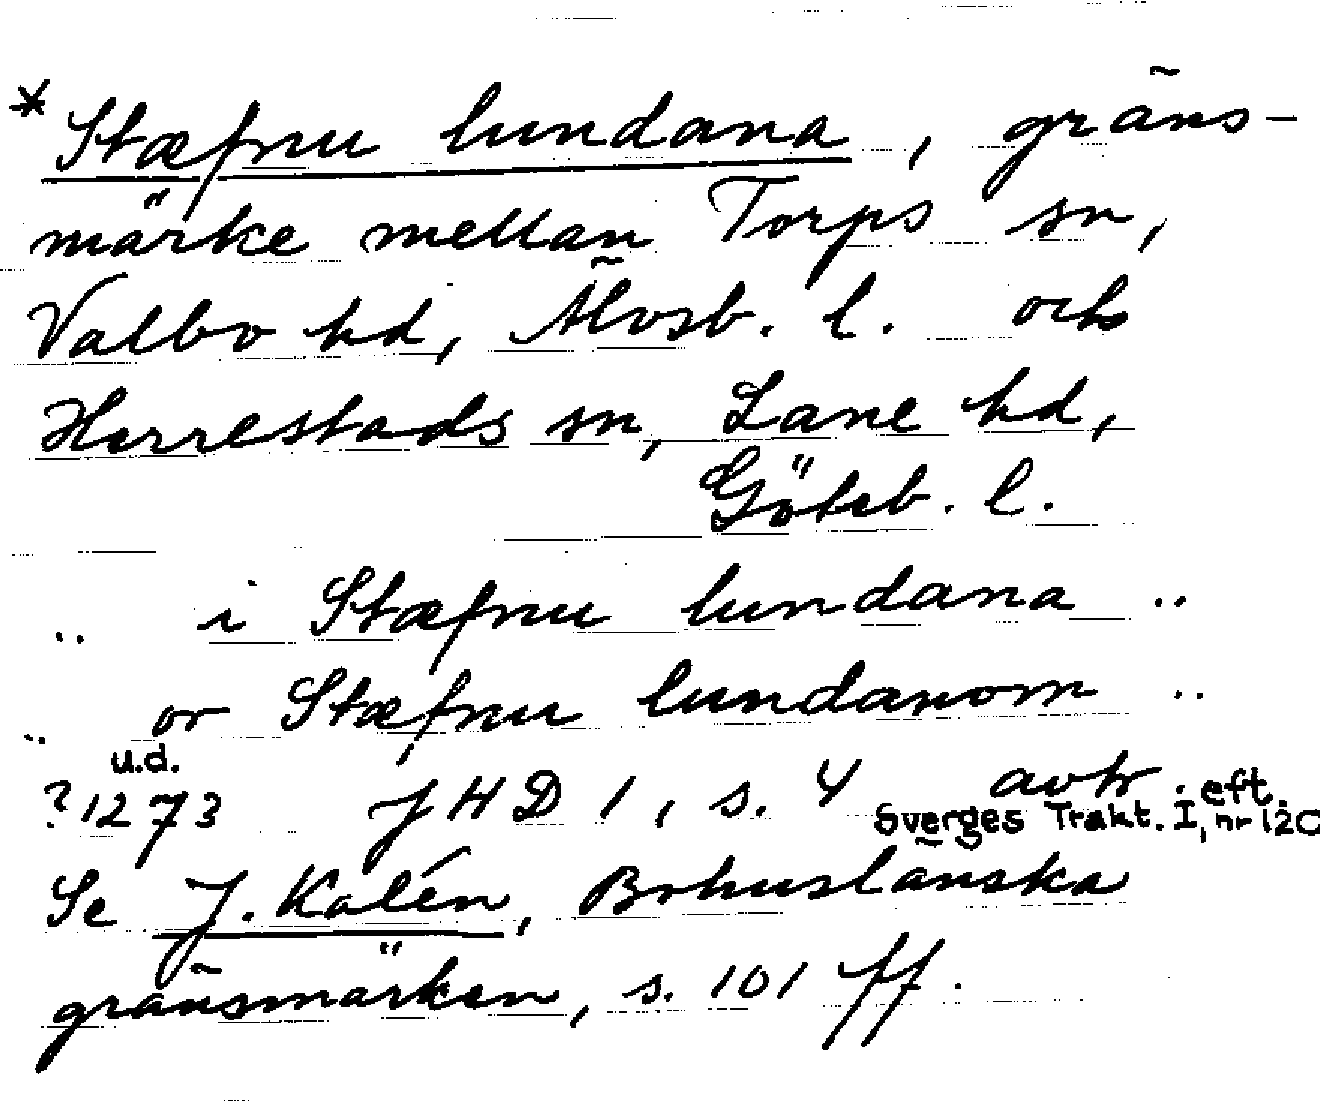 *Stæfnu lundana, gräns-
märke mellan Torps sn,
Valbo hd, Älvsb. l. och
Herrestads sn, Lane hd,
Göteb. l.
.. i Stæfnu lundana ..
.. or Stæfnu lundanom ..
u.d.
?1273 JHD 1, s. 4 avtr. eft.
Sverges Trakt. I, nr 120
Se J. Kalén, Bohuslänska
gränsmärken, s. 101 ff.